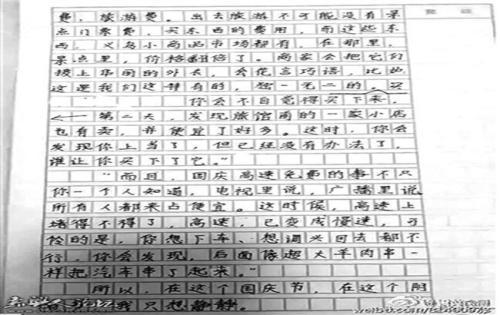 费，旅游费。出去旅游不可能没有景
点门票费，买东西的费用，而这些东
西，义乌小商品市场都有，在那里，
景点里，价格翻倍了。商家会把它们
披上华丽的外衣，秀花言巧语，比如
这是我们这特有的，独一无二的。买
你会不自觉得买下来，
第二天，发现旅馆旁的一家小店
也有卖，并便宜了好多。这时，你会
发现你上当了，但已经没有办法了，
谁让你买下了它。”
“而且，国庆高速免费的事不只
你一个人知道，电视里说，广播里说
所有人都来占便宜。这时候，高速上
堵得不得了，高速，已变成慢速，可
怜的是，你想下车、想调头回去都不
行，你会发现，后面像超大羊肉串一
样把汽车串了起来。”
所以，在这个国庆节，在这个阴
我只想静静。